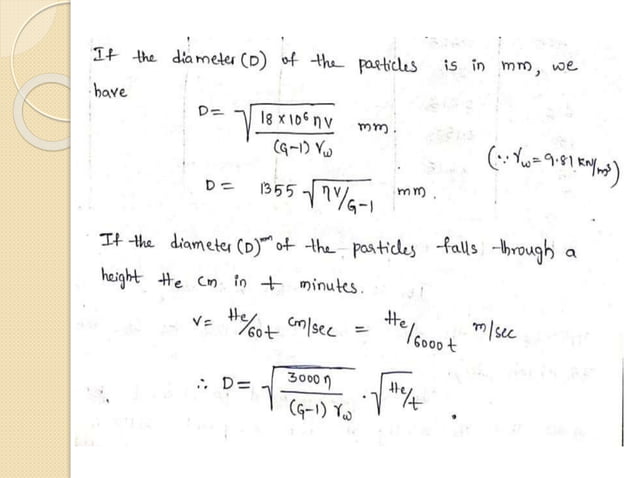 If the diameter (D) of the particles is in mm, we
have
D = √(18 × 10⁶ η V / (G-1) γw) mm.
(∵ γw = 9.81 KN/m³)
D = 1355 √(ηV/G-1) mm.
If the diameter (D) mm of the particles falls through a
height He cm in t minutes.
V = He/60t cm/sec = He/6000t m/sec
∴ D = √(3000 η / (G-1) γw) . √(He/t) .